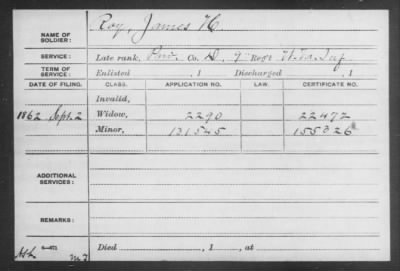 NAME OF SOLDIER: Roy, James H
SERVICE: Late rank, Priv. Co. D, 9" Reg't W. Va. Inf
TERM OF SERVICE: Enlisted , 1 Discharged , 1
DATE OF FILING. CLASS. APPLICATION NO. LAW. CERTIFICATE NO.
Invalid,
1862 Sept. 2 Widow, 2290 22472
Minor, 131545 155326
ADDITIONAL SERVICES:
REMARKS:
Died , 1 , at